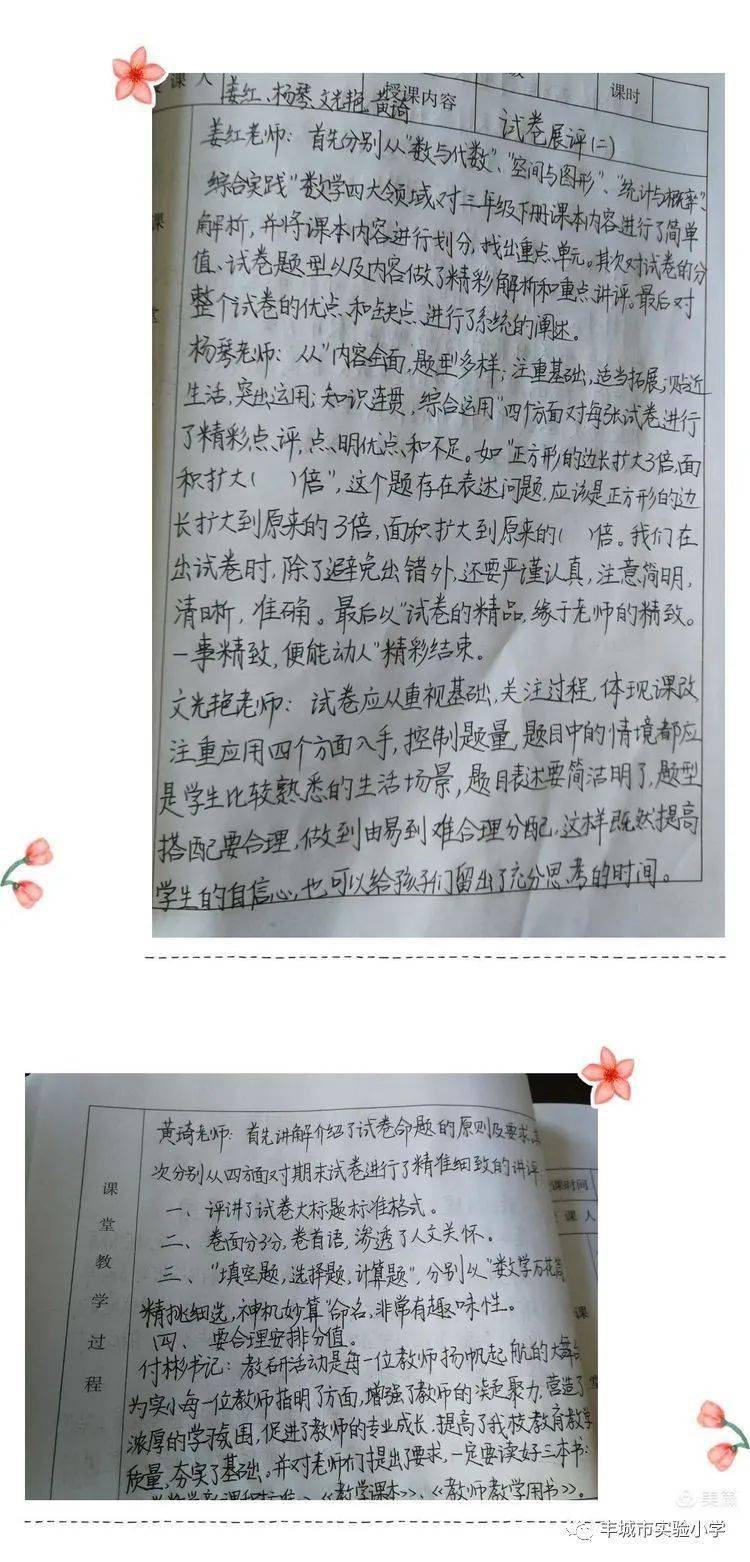 课人 姜红、杨琴、文光艳、黄琦 授课内容 试卷展评(二) 课时
姜红老师：首先分别从"数与代数"、"空间与图形"、"统计与概率"、
综合实践"数学四大领域，对三年级下册课本内容进行了简单
解析，并将课本内容进行划分，找出重点单元。其次对试卷的分
值、试卷题型以及内容做了精彩解析和重点讲评。最后对
整个试卷的优点和缺点进行了系统的阐述。
杨琴老师：从"内容全面，题型多样；注重基础，适当拓展；贴近
生活，突出运用；知识连贯，综合运用"四个方面对每张试卷进行
了精彩点评，点明优点和不足。如"正方形的边长扩大3倍，面
积扩大( )倍"，这个题存在表达问题，应该是正方形的边
长扩大到原来的3倍，面积扩大到原来的( )倍。我们在
出试卷时，除了避免出错外，还要严谨认真，注意简明，
清晰，准确。最后以"试卷的精品，缘于老师的精致。
一事精致，便能动人"精彩结束。
文光艳老师：试卷应从重视基础，关注过程，体现课改
注重应用四个方面入手，控制题量，题目中的情境都应
是学生比较熟悉的生活场景，题目表述要简洁明了，题型
搭配要合理，做到由易到难合理分配，这样既然提高
学生的自信心，也可以给孩子们留出了充分思考的时间。
黄琦老师：首先讲解介绍了试卷命题的原则及要求，其
次分别从四方面对期末试卷进行了精准细致的讲评
一、评讲了试卷大标题标准格式。
二、卷面分3分，卷首语，渗透了人文关怀。
三、"填空题，选择题，计算题"，分别以"数学万花筒
精挑细选，神机妙算"命名，非常有趣味性。
四、要合理安排分值。
付彬书记：教研活动是每一位教师扬帆起航的大舞台
为实小每一位教师指明了方面，增强了教师的凝聚力，营造了
浓厚的学习氛围，促进了教师的专业成长，提高了我校教育教学
质量，夯实了基础。并对老师们提出了要求，一定要读好三本书：
《教学课本》、《教师教学用书》。
课堂教学过程
课时间
课人
课
美篇
丰城市实验小学